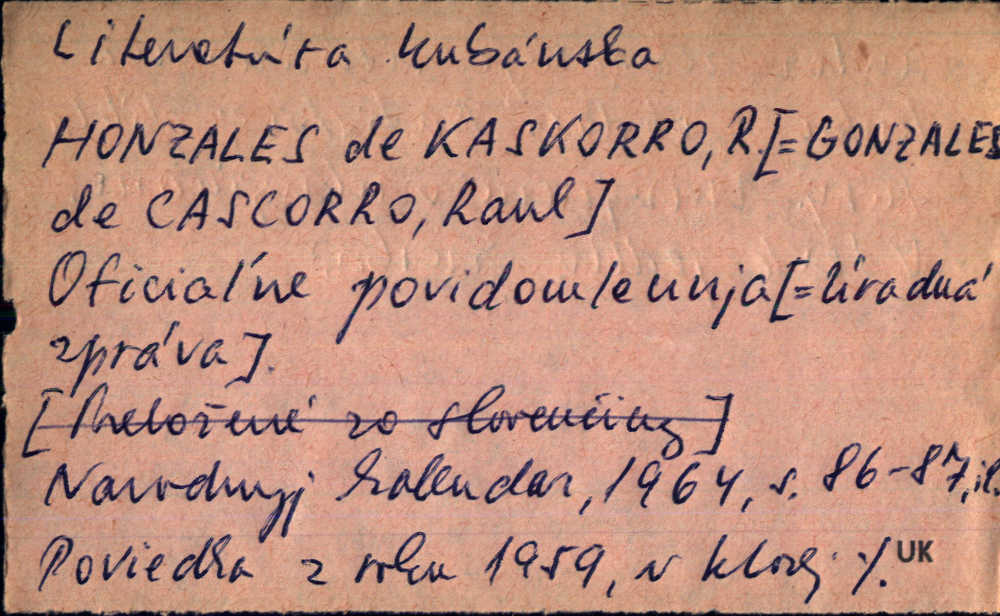 Literatúra kubánska
HONZALES de KASKORRO, R. [=GONZALES
de CASCORRO, Raul]
Oficialʹne povidomlennja [=Úradná
zpráva].
[Preložené zo slovenčiny]
Narodnyj kalendar, 1964, s. 86-87, il.
Poviedka z roku 1959, v ktorej ./. UK